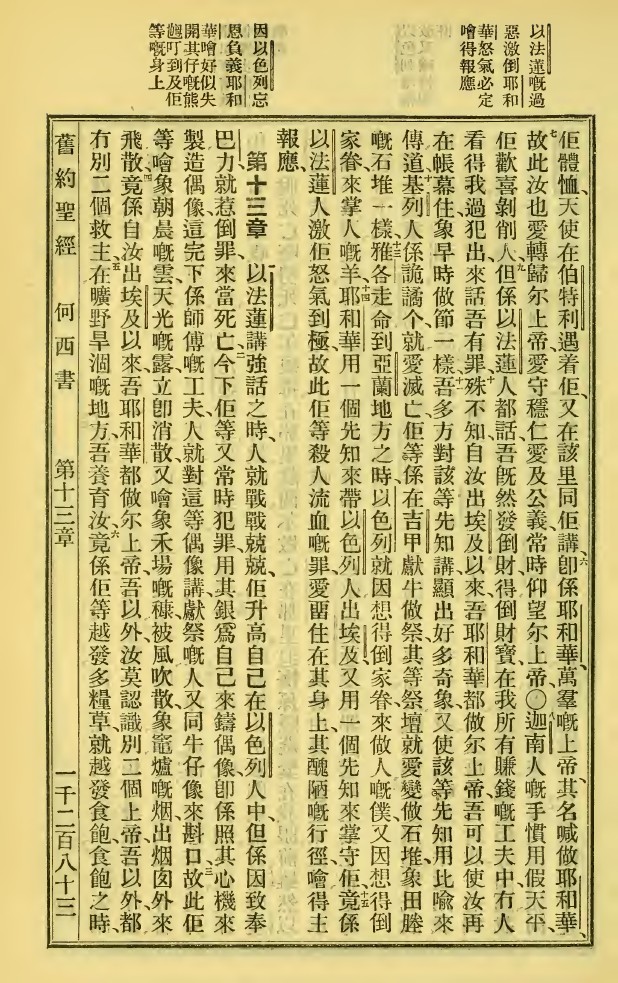 以法蓮嘅過
惡激倒耶和
華怒氣必定
噲得報應
因以色列忘
恩負義耶和
華噲好似失
開其仔嘅熊
䟴叮到及佢
等嘅身上
佢體恤、天使在伯特利遇着佢、又在該里同佢講、六卽係耶和華、萬羣嘅上帝、其名喊做耶和華、
七故此汝也愛轉歸尔上帝、愛守穩仁愛及公義、常時仰望尔上帝、〇八迦南人嘅手慣用假天平、
佢歡喜剝削人、九但係以法蓮人都話、吾旣然發倒財得倒財寶、在我所有賺錢嘅工夫中冇人
看得我過犯出來話吾有罪、十殊不知自汝出埃及以來、吾耶和華都做尔上帝、吾可以使汝再
在帳幕住、象早時做節一樣、十一吾多方對該等先知講、顯出好多奇象、又使該等先知用比喩來
傳道、十二基列人係詭譎个、就愛滅亡、佢等係在吉甲獻牛做祭、其等祭壇就愛變做石堆、象田塍
嘅石堆一樣、十三雅各走命到亞蘭地方之時、以色列就因想得倒家眷來做人嘅僕、又因想得倒
家眷來掌人嘅羊、十四耶和華用一個先知來帶以色列人出埃及、又用一個先知來掌守佢、十五竟係
以法蓮人激佢怒氣到極、故此佢等殺人流血嘅罪愛畱住在其身上、其醜陋嘅行徑噲得主
報應、
第十三章 一以法蓮講強話之時、人就戰戰兢兢、佢升高自己在以色列人中、但係因致奉
巴力就惹倒罪來當死亡、二今下佢等又常時犯罪、用其銀爲自己來鑄偶像、卽係照其心機來
製造偶像、這完下係師傅嘅工夫、人就對這等偶像講、獻祭嘅人又同牛仔像來斟口、三故此佢
等噲象朝晨嘅雲、天光嘅露、立卽消散、又噲象禾塲嘅穅被風吹散、象竈爐嘅烟出烟囱外來
飛散、四竟係自汝出埃及以來、吾耶和華都做尔上帝、吾以外汝莫認識別二個上帝、吾以外都
冇別二個救主、五在曠野旱涸嘅地方、吾養育汝、六竟係佢等越發多糧草、就越發食飽、食飽之時、
舊約聖經 何西書 第十三章 一千二百八十三